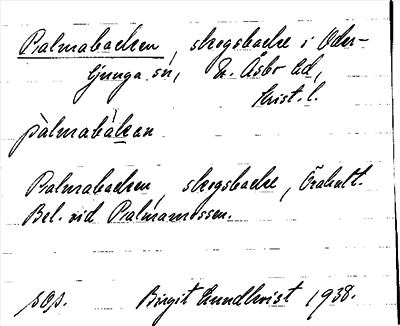 Palmabacken, skogsbacke i Oder-
ljunga sn, N. Åsbo hd,
Krist. l.
pàlmabákan
Palmabacken, skogsbacke, Örahult.
Bel. vid Palmamossen.
sOs. Birgit Lundkvist 1938.